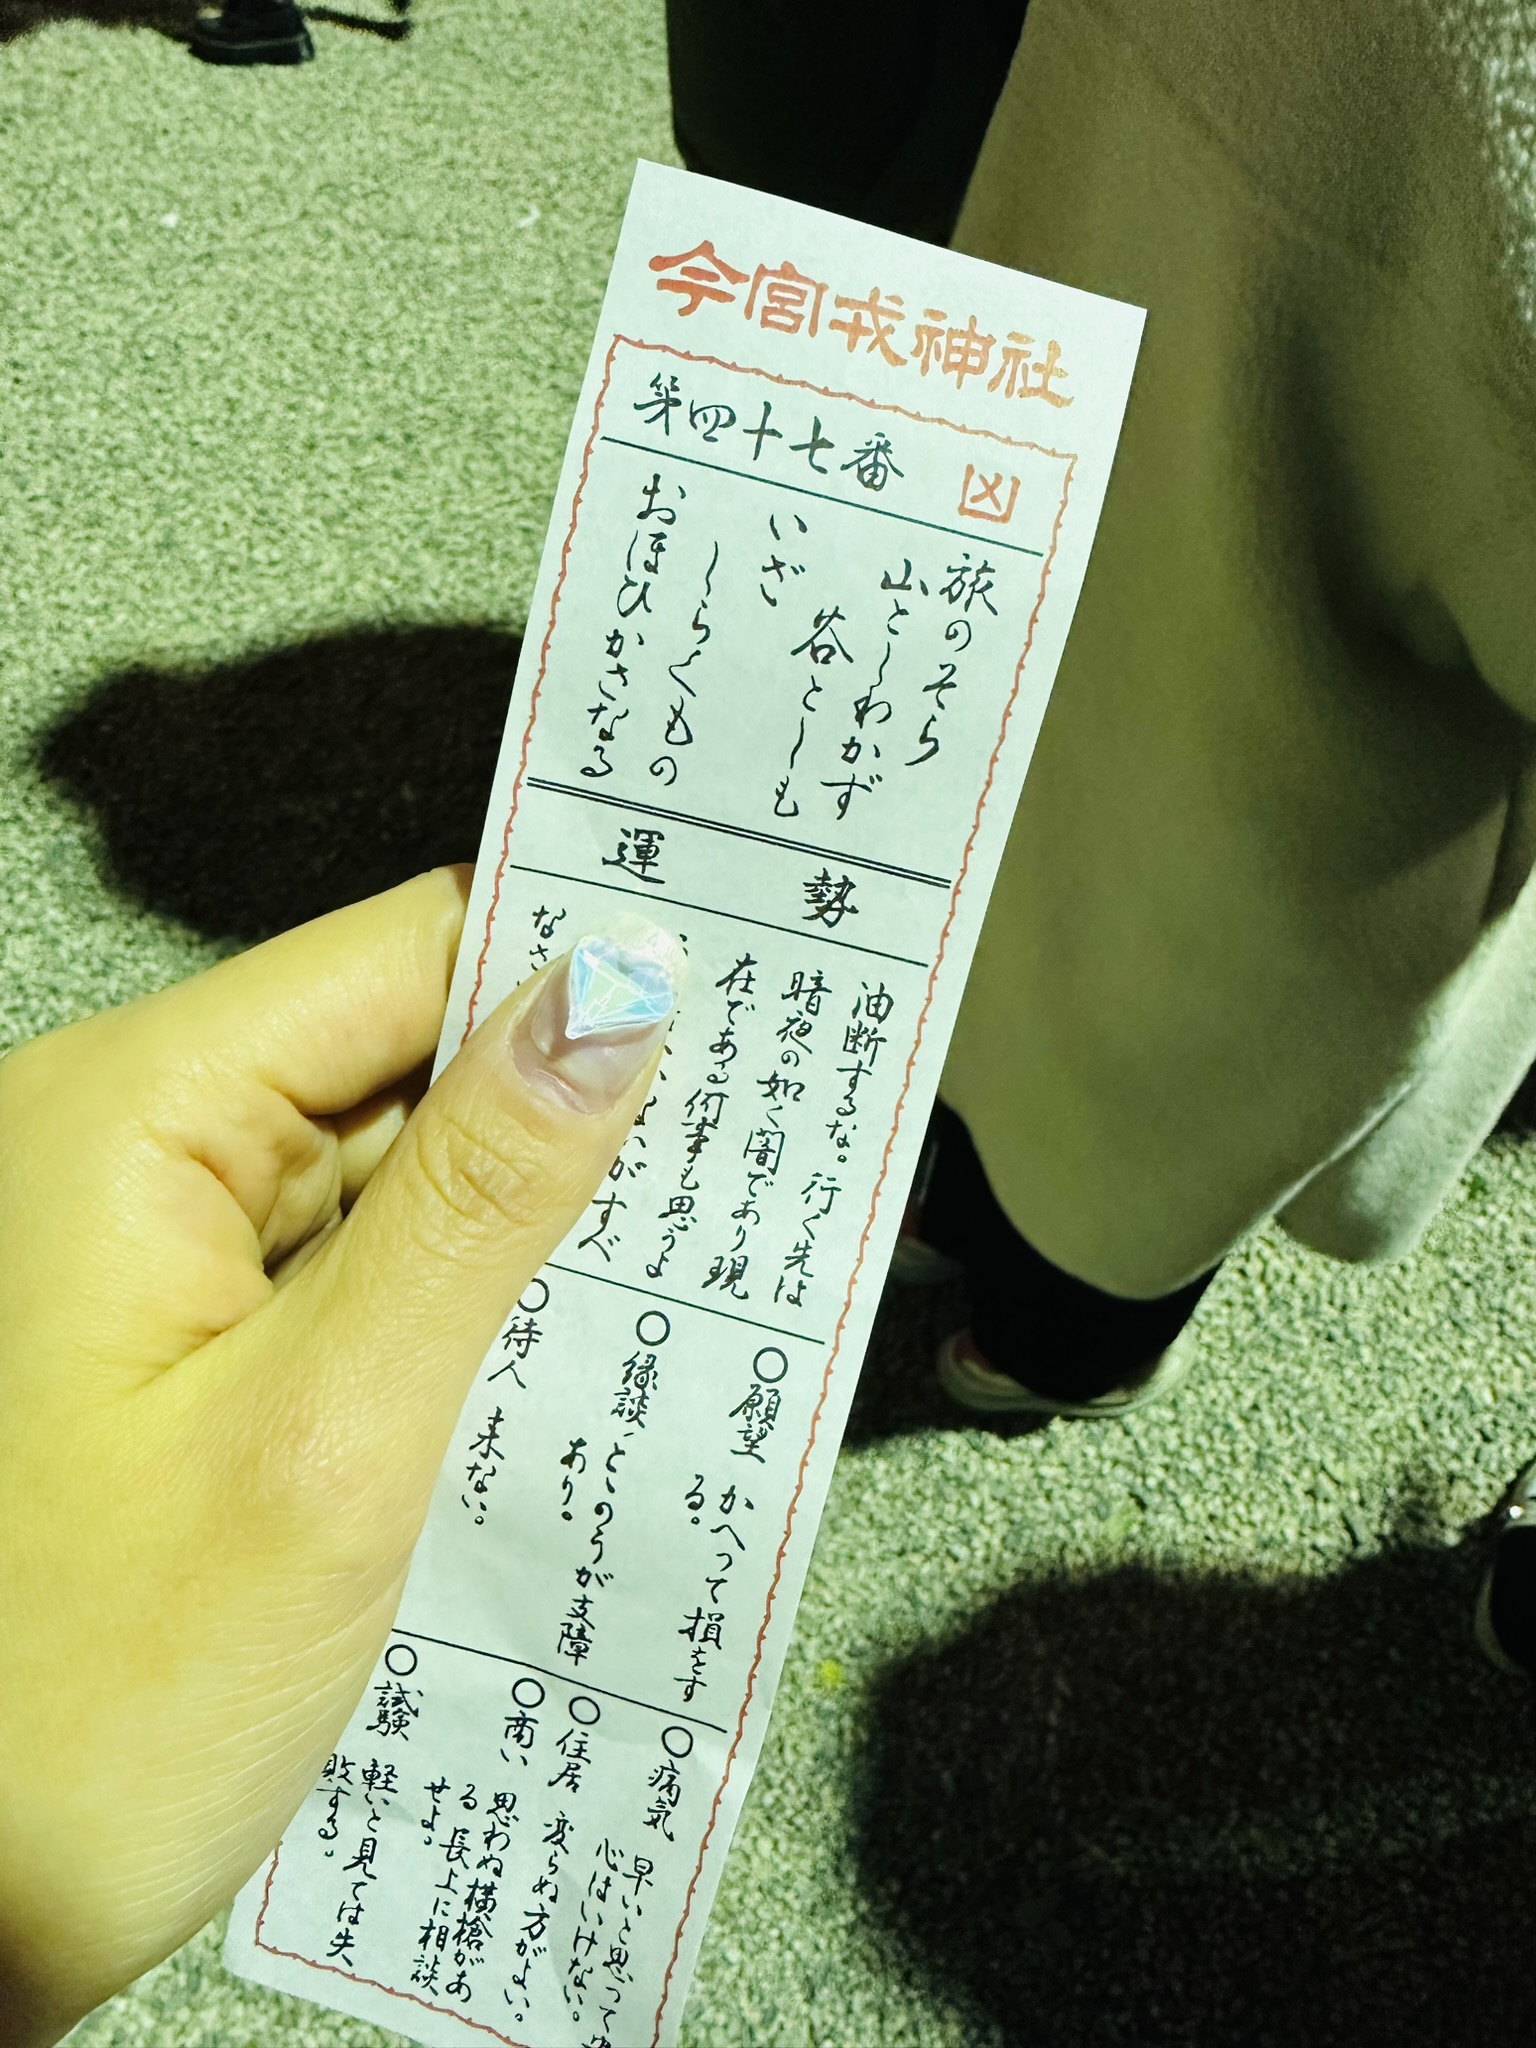 今宮戎神社
第四十七番 凶
旅のそら
山としわかず
谷としも
いざ
しらくもの
おほひかさなる
運勢
油断するな。行く先は
暗夜の如く闇であり現
在である何事も思うよ
いないがすべ
なさ
○願望 かへって損をす
る。
○縁談、とこのうが支障
あり。
○待人 来ない。
○病気 早いと思って
心はいけない。
○住居 変らぬ方がよい。
○商い 思わぬ横槍があ
る 長上に相談
せよ。
○試験 軽いと見ては失
敗する。